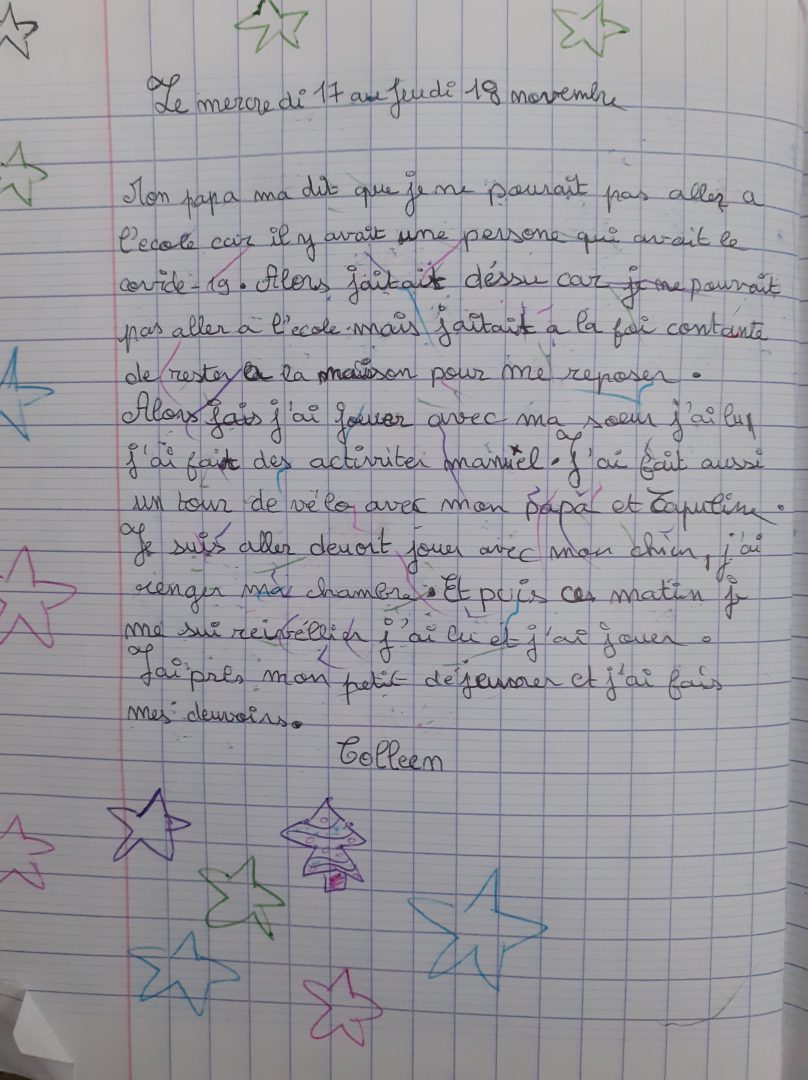 Le mercredi 17 au jeudi 18 novembre
Mon papa ma dit que je ne pourait pas aller a
l'ecole car il y avait une persone qui avait le
covide-19. Alors jaitait déssu car je ne pourrait
pas aller à l'ecole mais jaitait à la foi contante
de rester a la maison pour me reposer.
Alors j'ai jouer avec ma soeur j'ai lu
j'ai fait des activitei manuel. J'ai fait aussi
un tour de vélo avec mon papa et Capucine.
Je suis aller deuort jouer avec mon chien, j'ai
renger ma chambre. Et puis ce matin je
me sui reivéllier j'ai lu et j'ai jouer.
J'ai pris mon petit déjeuner et j'ai fais
mes devoirs.
Colleen